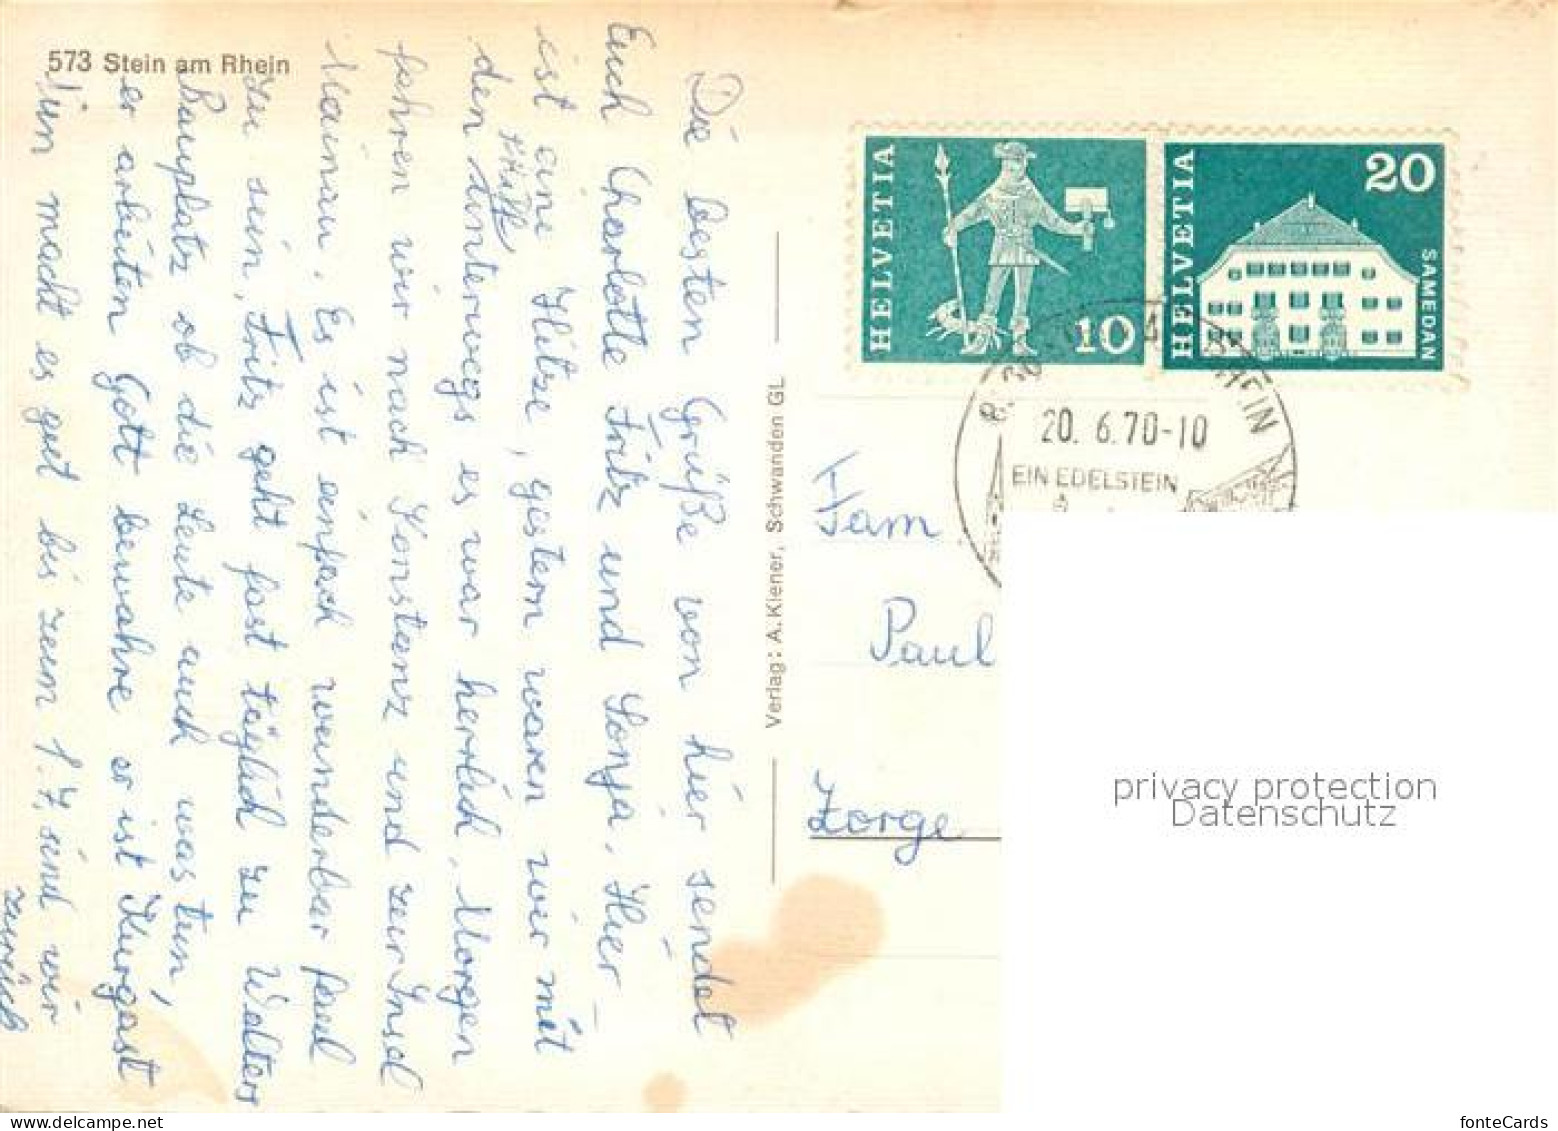 573 Stein am Rhein
Die besten Grüße von hier sendet
Euch Charlotte Fritz und Sonja. Hier
ist eine Hitze, gestern waren wir mit
den Schiff
unterwegs es war herrlich. Morgen
fahren wir nach Konstanz und zur Insel
Mainau. Es ist einfach wunderbar faul
zu sein. Fritz geht fast täglich zu Walters
Bauplatz ob die Leute auch was tun,
er arbeiten Gott bewahre er ist Kurgast
Nun macht es gut bis zum 1.7. sind wir
zurück
Verlag: A. Kiener, Schwanden GL
HELVETIA
10
HELVETIA
20
SAMEDAN
RHEIN
20.6.70-10
EIN EDELSTEIN
Fam
Paul
Zorge
privacy protection
Datenschutz
fonteCards